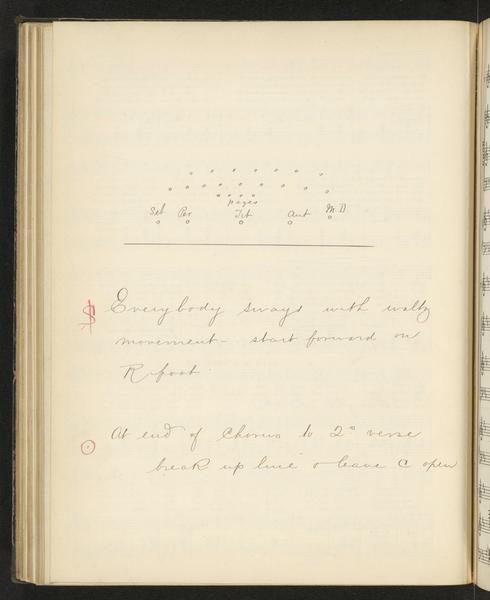 pages
Sel Per Tit Ant M.D
Everybody sways with waltz
movement - start forward on
R. foot
At end of Chorus to 2° verse
break up line & leave C open